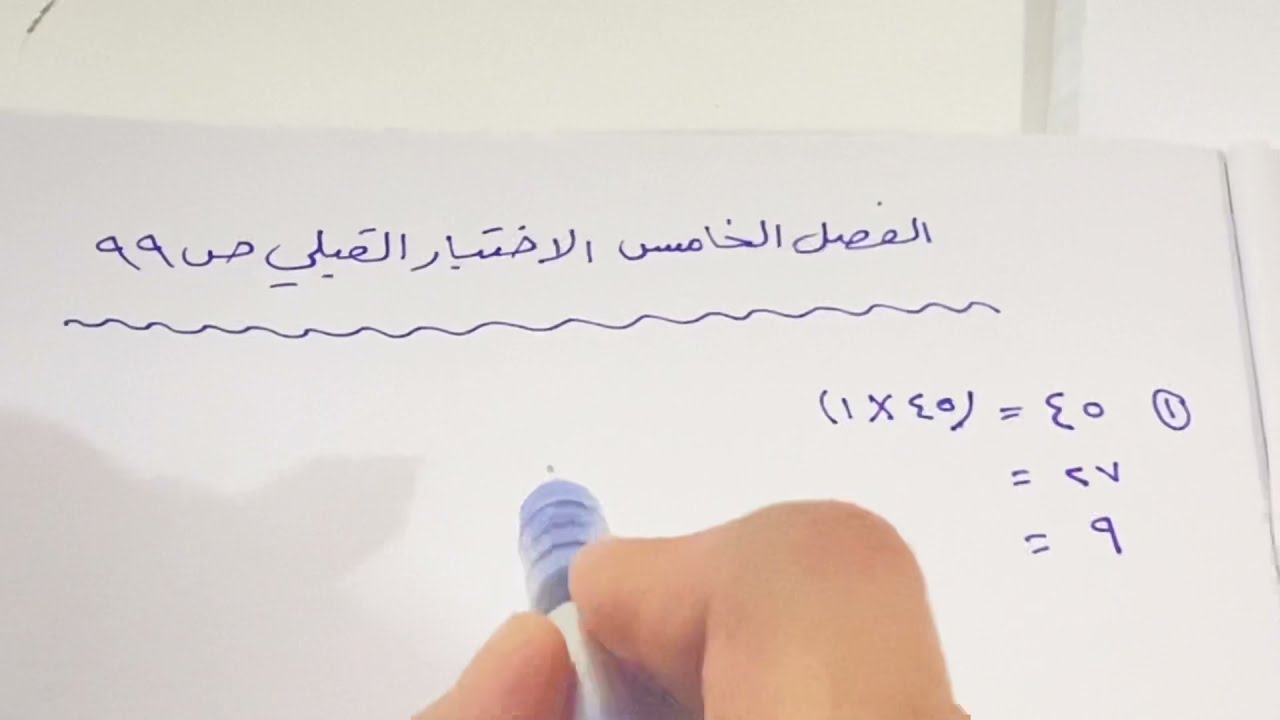 الفصل الخامس الاختبار القبلي ص ٩٩
① ٤٥ = (٤٥ × ١)
٢٧ =
٩ =